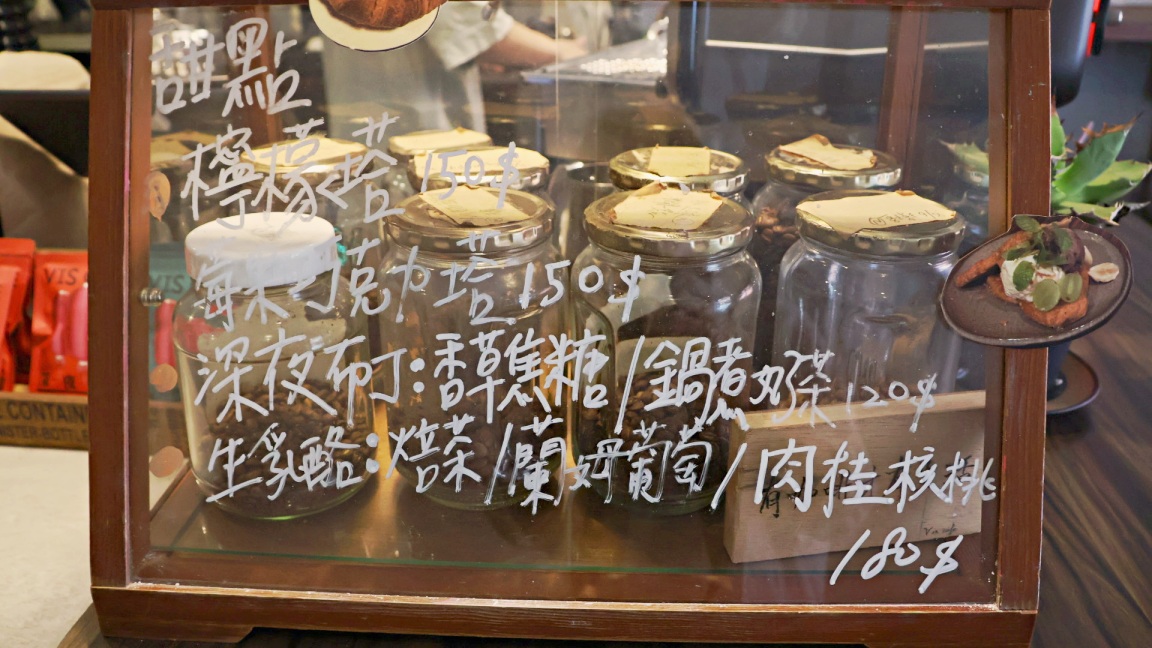 甜點
檸檬塔 150$
莓果巧克力塔 150$
深夜布丁:香蕉糖/鍋煮奶茶 120$
生乳酪:焙茶/蘭姆葡萄/肉桂核桃
180$
VIS
CONTAIN